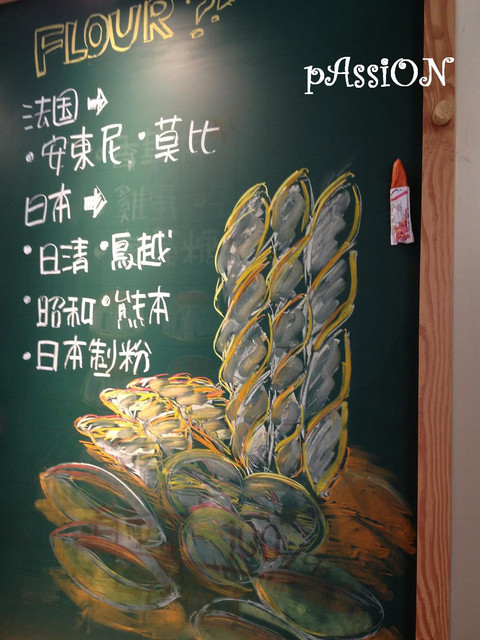 FLOUR
pAssiON
法国→
·安東尼·莫比
日本→
·日清·鳥越
·昭和·熊本
·日本制粉